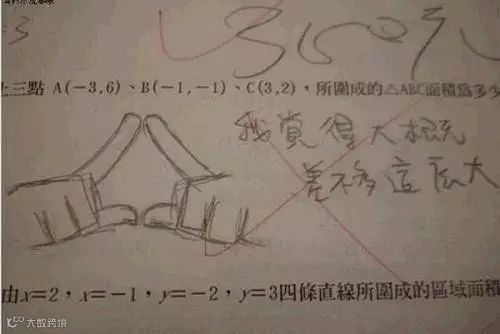 上三點 A(-3,6)、B(-1,-1)、C(3,2)，所圍成的△ABC面積為多少
我覺得大概
差不多這麼大
由x=2，x=-1，y=-2，y=3四條直線所圍成的區域面積
大數跨境